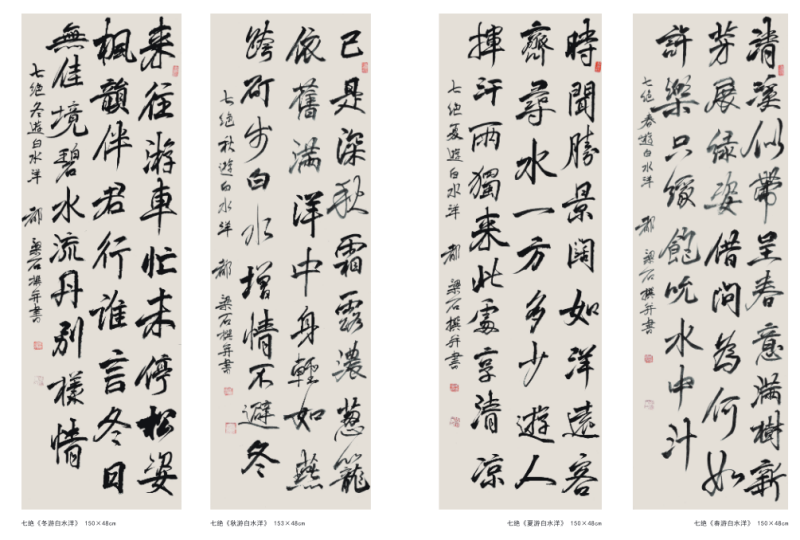 清溪似帶呈春意滿樹新
芽展绿姿借問為何如
許樂只緣飽吮水中汁
七绝春遊白水洋 都 梁石撰并書
時聞勝景闊如洋遠客
齊尋水一方多少遊人
揮汗雨獨来此處享清涼
七绝夏遊白水洋 都 梁石撰并書
已是深秋霜露濃蔥籠
依舊滿洋中身輕如燕
跨矴步白水增情不避冬
七绝秋遊白水洋 都 梁石撰并書
来往游車忙未停松姿
楓韻伴君行誰言冬日
無佳境碧水流丹别樣情
七绝冬遊白水洋 都 梁石撰并書
七绝《冬游白水洋》 150×48cm
七绝《秋游白水洋》 153×48cm
七绝《夏游白水洋》 150×48cm
七绝《春游白水洋》 150×48cm